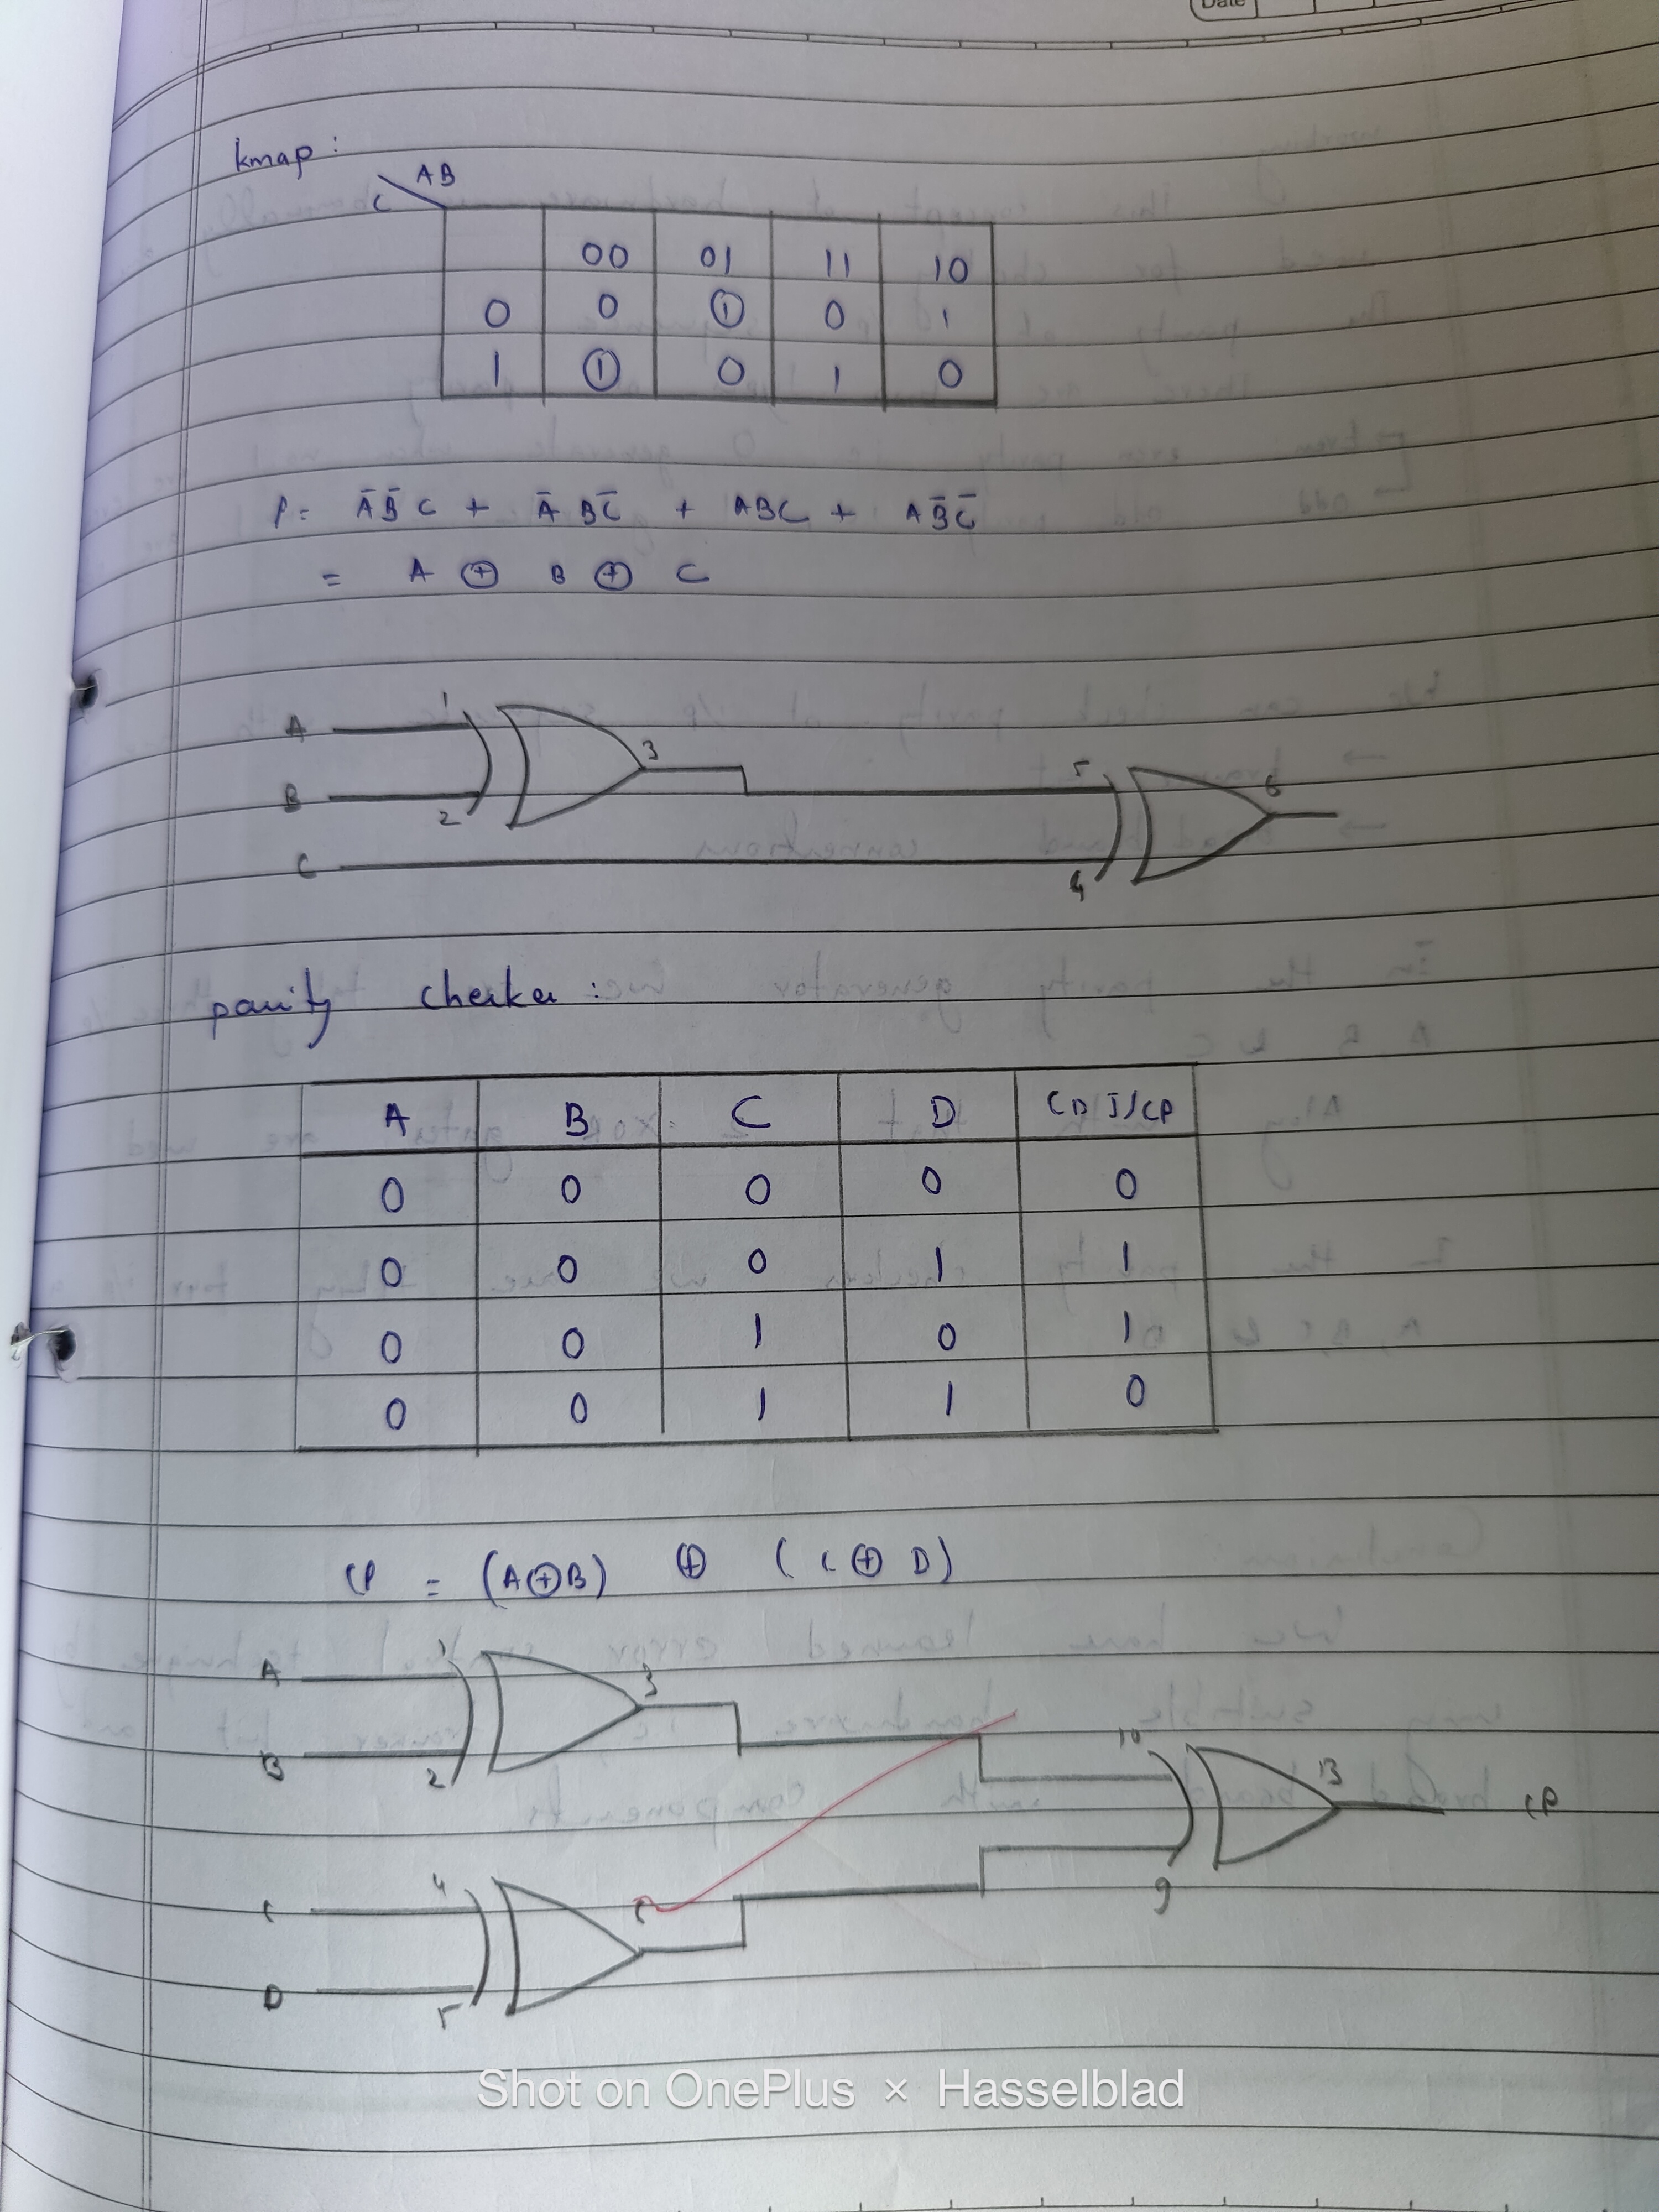 Date
kmap :
AB
C
00 01 11 10
0 0 1 0 1
1 1 0 1 0
P = A̅ B̅ C + A̅ B C̅ + A B C + A B̅ C̅
= A ⊕ B ⊕ C
A 1
3
B 2
5
6
C
4
parity checker :
A B C D
0 0 0 0 0
0 0 0 1 1
0 0 1 0 1
0 0 1 1 0
CP = (A⊕B) ⊕ (C⊕D)
A 1
3
B 2
10
13
CP
C 4
9
D 5
Shot on OnePlus × Hasselblad